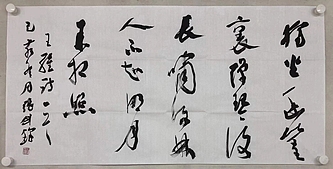 独坐幽篁
裏弹琴復
長嘯深林
人不知明月
来相照
王維詩一首
己亥十月